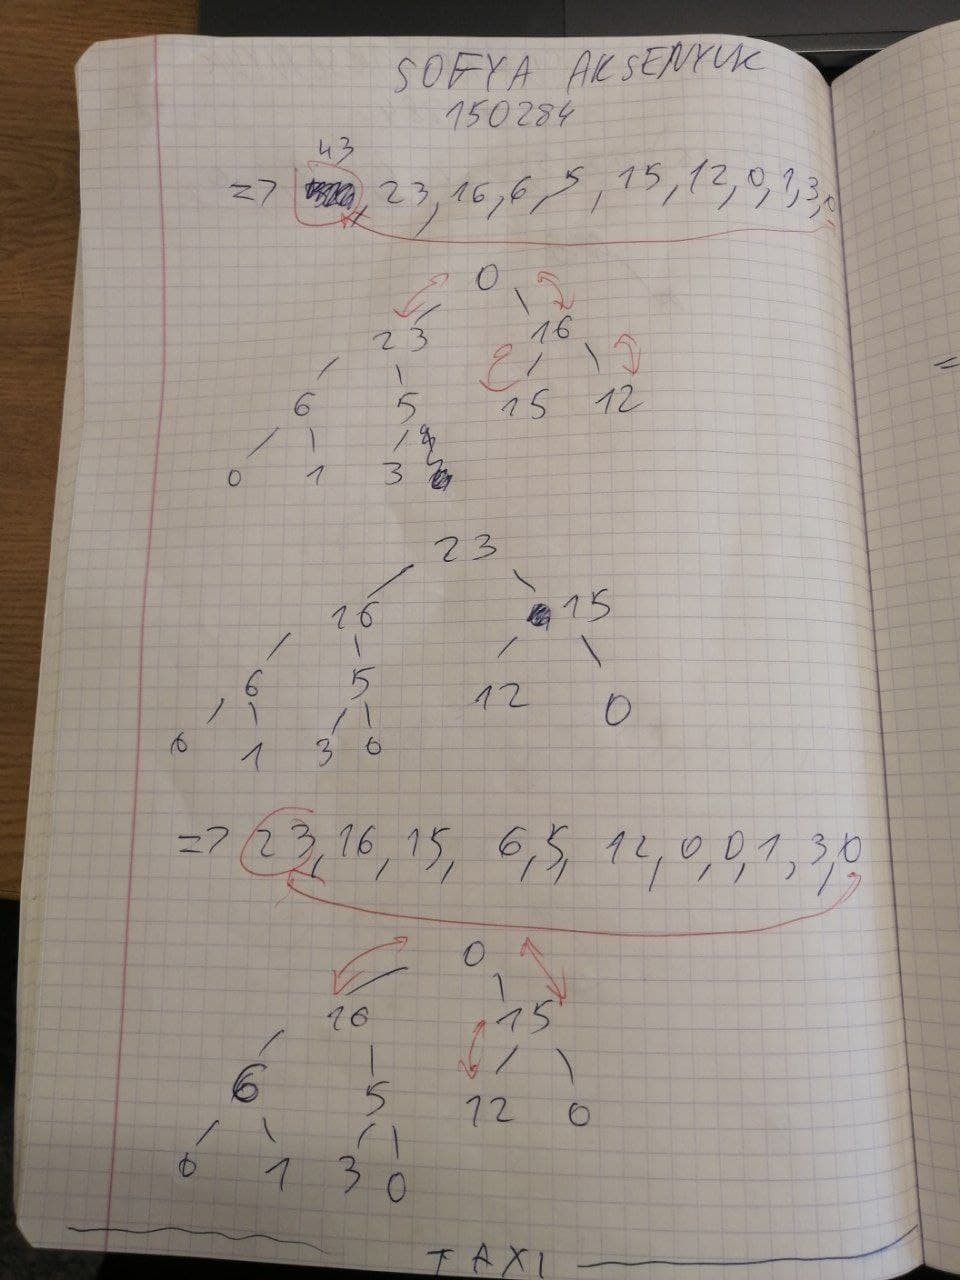 SOFYA AKSENYUK
150284
43
=> , 23, 16, 6, 5, 15, 12, 0, 1, 3, 0
0
23 16
6 5 15 12
0 1 3
23
16 15
6 5 12 0
0 1 3 0
=> 23, 16, 15, 6, 5, 12, 0, 0, 1, 3, 0
0
16 15
6 5 12 0
0 1 3 0
TAXI
=